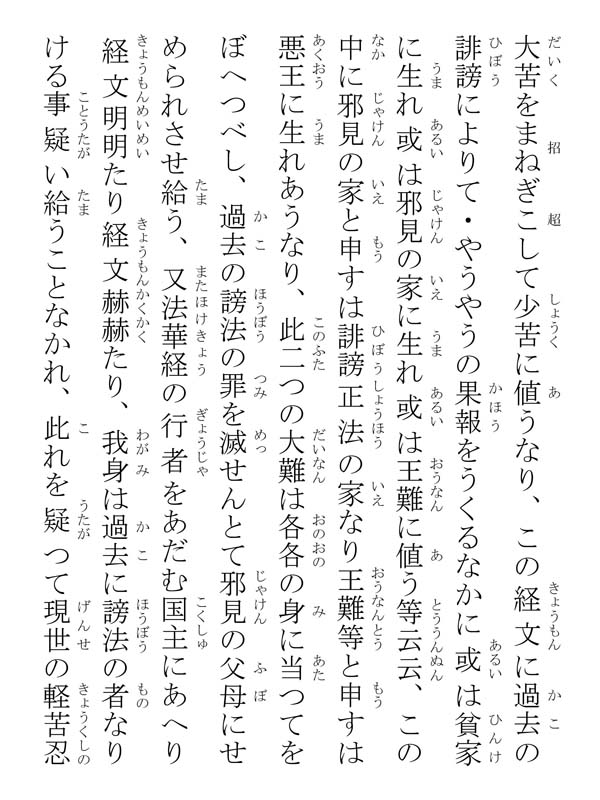 大苦をまねぎこして少苦に値うなり、この経文に過去の
誹謗によりて・やうやうの果報をうくるなかに或は貧家
に生れ或は邪見の家に生れ或は王難に値う等云云、この
中に邪見の家と申すは誹謗正法の家なり王難等と申すは
悪王に生れあうなり、此二つの大難は各各の身に当つてを
ぼへつべし、過去の謗法の罪を滅せんとて邪見の父母にせ
められさせ給う、又法華経の行者をあだむ国主にあへり
経文明明たり経文赫赫たり、我身は過去に謗法の者なり
ける事疑い給うことなかれ、此れを疑つて現世の軽苦忍